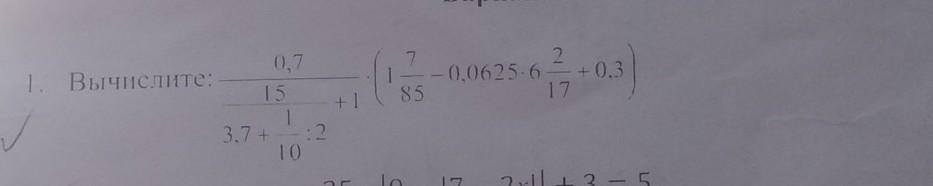 1. Вычислите: \frac{0,7}{\frac{15}{3,7 + \frac{1}{10} : 2} + 1} \cdot \left( 1\frac{7}{85} - 0,0625 \cdot 6\frac{2}{17} + 0,3 \right)